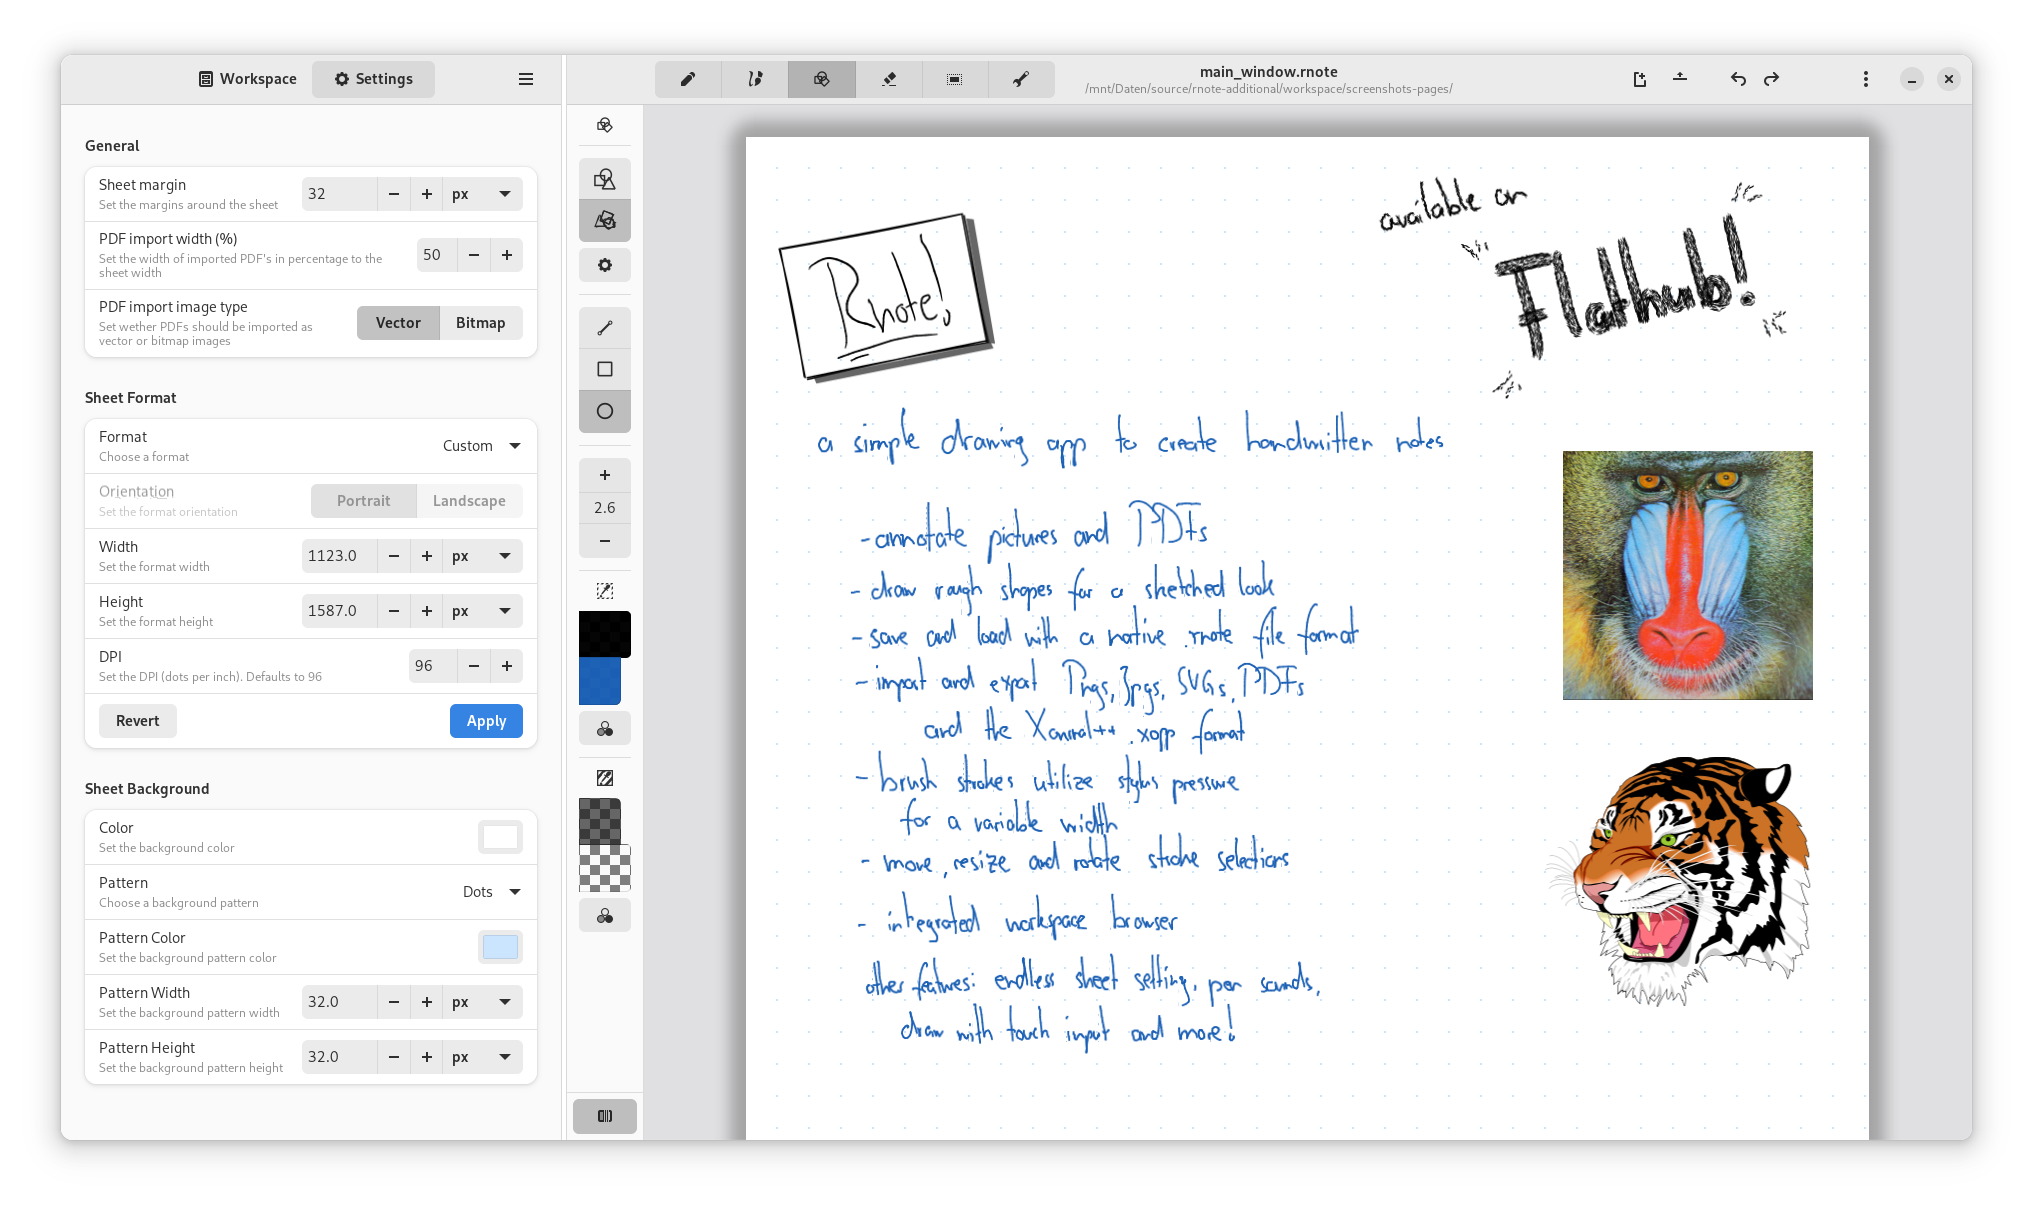 Workspace
Settings
main_window.rnote
/mnt/Daten/source/rnote-additional/workspace/screenshots-pages/
General
Sheet margin
Set the margins around the sheet
32
px
PDF import width (%)
Set the width of imported PDF's in percentage to the
sheet width
50
PDF import image type
Set wether PDFs should be imported as
vector or bitmap images
Vector
Bitmap
Sheet Format
Format
Choose a format
Custom
Orientation
Set the format orientation
Portrait
Landscape
Width
Set the format width
1123.0
px
Height
Set the format height
1587.0
px
DPI
Set the DPI (dots per inch). Defaults to 96
96
Revert
Apply
Sheet Background
Color
Set the background color
Pattern
Choose a background pattern
Dots
Pattern Color
Set the background pattern color
Pattern Width
Set the background pattern width
32.0
px
Pattern Height
Set the background pattern height
32.0
px
2.6
Rnote!
available on
Flathub!
a simple drawing app to create handwritten notes
- annotate pictures and PDFs
- draw rough shapes for a sketched look
- save and load with a native .rnote file format
- import and export Pngs, Jpgs, SVGs, PDFs
and the Xournal++ .xopp format
- brush strokes utilize stylus pressure
for a variable width
- move, resize and rotate stroke selections
- integrated workspace browser
other features: endless sheet setting, pen sounds,
draw with touch input and more!